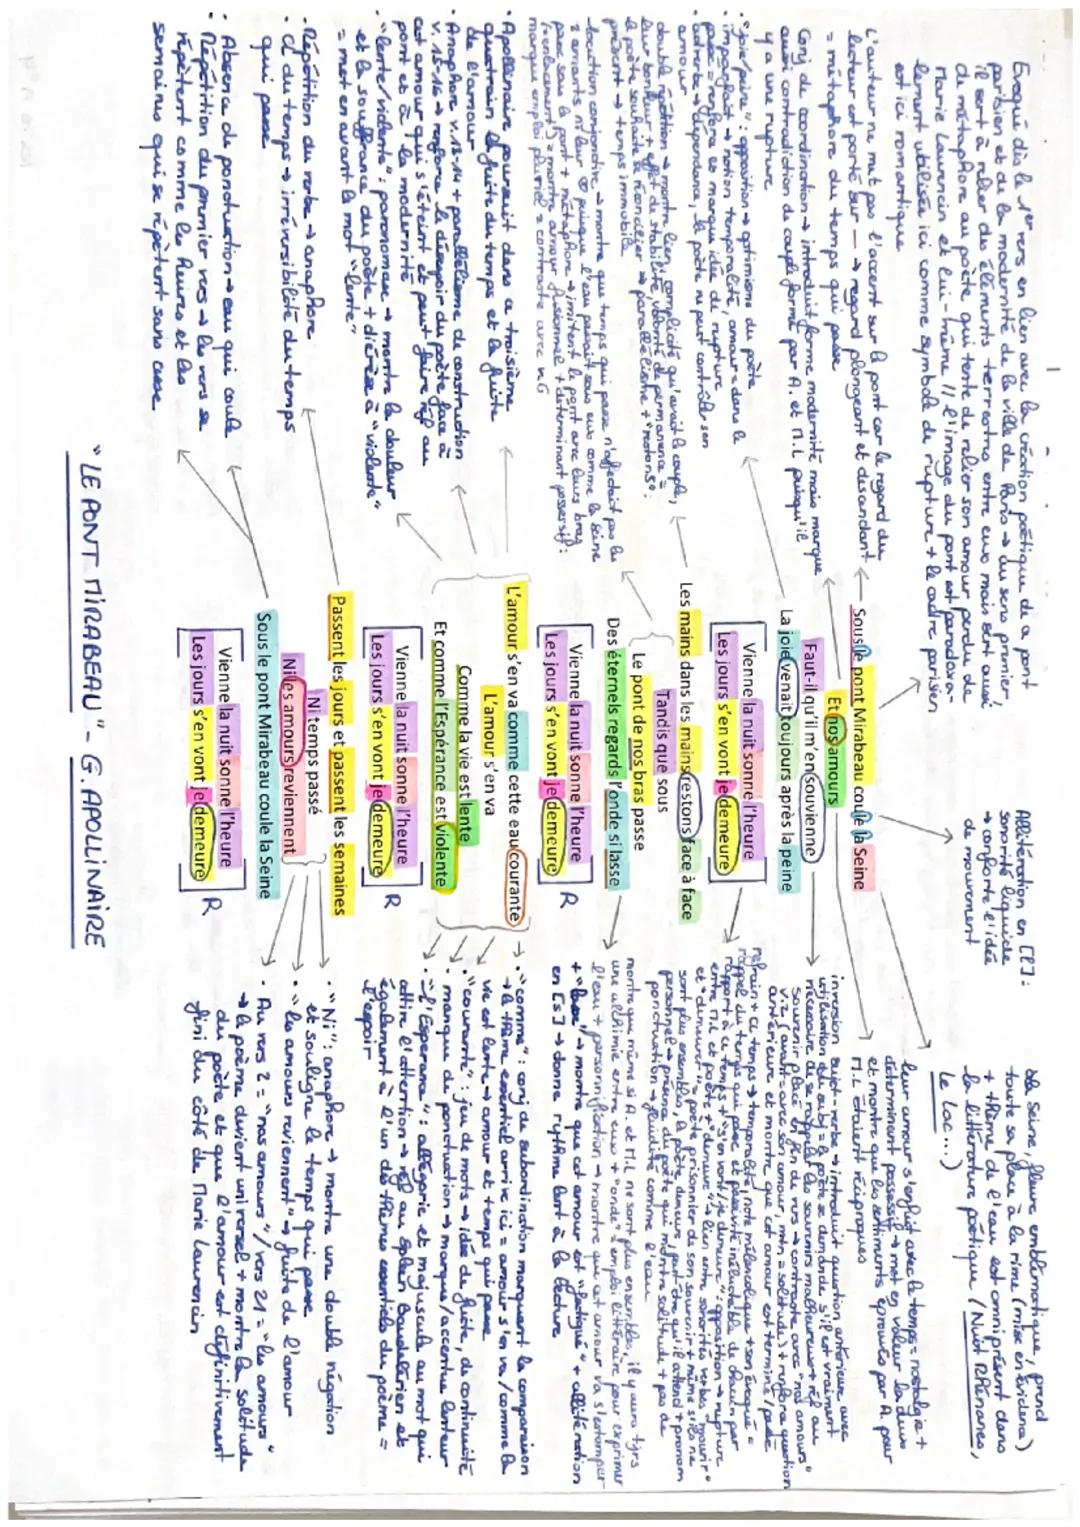 Evoqué dès le 1er vers en lien avec la création poétique du pont
parisien et de la modernité de la ville de Paris → au sens premier,
il sert à relier des éléments terrestres entre eux mais sert aussi
de métaphore au poète qui tente de relier son amour perdu de
Marie Laurencin et lui-même // l'image du pont est paradoxa-
lement utilisée ici comme symbole de rupture + le cadre parisien
est ici romantique
L'auteur ne met pas l'accent sur le pont car le regard du
lecteur est porté sur → regard plongeant et descendant
= métaphore du temps qui passe
Conj de coordination → introduit forme modernité mais marque
aussi contradiction du couple formé par A. et M.L puisqu'il
y a une rupture
"joie/peine" : opposition → optimisme du poète
imparfait → notion temporalité, amour = dans le
passé = renforce et marque idée de rupture
adverbe → dépendance, le poète ne peut contrôler son
amour
double répétition → montre lien, complicité qu'avait le couple,
leur bonheur + effet de stabilité, volonté de permanence =
le poète souhaite se réconcilier → parallélisme + "restons" :
présent → temps immobile
locution conjonctive → montre que temps qui passe n'affectait pas les
2 amants ni leur puisque l'eau passait sous eux comme la Seine
passe sous le pont + métaphore → imitent le pont avec leurs bras
(enlacement) = montre amour fusionnel + déterminant possessif :
marque emploi pluriel = contraste avec v.6
Apollinaire poursuit dans ce troisième
quatrain la fuite du temps et la fuite
de l'amour
Anaphore v.13-14 + parallélisme de construction
v. 15-16 → renforce le désespoir du poète face à
cet amour qui s'éteint et peut faire réf au
pont et à la modernité
"lente/violente" : paronomase → montre la douleur
et la souffrance du poète + diérèse à "violente"
= met en avant le mot "lente"
Répétition du verbe → anaphore
et du temps → irréversibilité du temps
qui passe
Absence de ponctuation → eau qui coule
Répétition du premier vers → les vers se
répètent comme les heures et les
semaines qui se répètent sans cesse
Allitération en [l] :
sonorité liquide
→ conforte l'idée
de mouvement
Sous le pont Mirabeau coule la Seine
Et nos amours
Faut-il qu'il m'en souvienne
La joie venait toujours après la peine
Vienne la nuit sonne l'heure
Les jours s'en vont je demeure
Les mains dans les mains restons face à face
Tandis que sous
Le pont de nos bras passe
Des éternels regards l'onde si lasse
Vienne la nuit sonne l'heure
Les jours s'en vont je demeure
R
L'amour s'en va comme cette eau courante
L'amour s'en va
Comme la vie est lente
Et comme l'Espérance est violente
Vienne la nuit sonne l'heure
Les jours s'en vont je demeure
R
Passent les jours et passent les semaines
Ni temps passé
Ni les amours reviennent
Sous le pont Mirabeau coule la Seine
Vienne la nuit sonne l'heure
Les jours s'en vont je demeure
R
La Seine, fleuve emblématique, prend
toute sa place à la rime (mise en évidence)
+ thème de l'eau est omniprésent dans
la littérature poétique (Nuit Rhénane,
Le Lac...)
leur amour s'enfuit avec le temps = nostalgie +
déterminant possessif → met en valeur le duo
et montre que les sentiments éprouvés par A. pour
M.L étaient réciproques
inversion sujet-verbe → introduit question antérieure avec
utilisation du subj = le poète se demande s'il est vraiment
nécessaire de se rappeler les souvenirs malheureux + réf au
souvenir placé en fin de vers → contraste avec "nos amours"
v.2 (avant = avec son amour, mtn = solitude) + renforce question
antérieure et montre que cet amour est terminé/passé
refrain + ce temps → temporalité, note mélancolique + son évoque =
rappel du temps qui passe et passivité inéluctable de chacun par
rapport à ce temps + "s'en vont/je demeure" : opposition → rupture
entre M.L et poète + "demeure" → lien entre sonorités verbes "mourir"
et "demeurer" → poète prisonnier de son souvenir + même s'ils ne
sont plus ensemble, le poète demeure, peut-être qu'il attend + pronom
personnel → présence du poète qui montre solitude + pas de
ponctuation → fluidité comme l'eau
montre que même si A. et M.L ne sont plus ensemble, il y aura tjrs
une alchimie entre eux + "onde" : emploi littéraire pour exprimer
l'eau + personnification → montre que cet amour va s'estomper
+ "lasse" → montre que cet amour est "fatigué" + allitération
en [s] → donne rythme lent à la lecture
"comme" : conj de subordination marquent la comparaison
→ le thème essentiel arrive ici = amour s'en va/comme la
vie est lente → amour et temps qui passe
"courante" : jeu de mots → idée de fuite, de continuité
manque de ponctuation → marque/accentue lenteur
"l'Espérance" : allégorie et majuscule au mot qui
attire l'attention → réf au Spleen Baudelairien et
également à l'un des thèmes essentiels du poème =
l'espoir
"Ni" : anaphore → montre une double négation
et souligne le temps qui passe
"les amours reviennent" → fuite de l'amour
Au vers 2 = "nos amours"/vers 21 = "les amours"
→ le poème devient universel + montre la solitude
du poète et que l'amour est définitivement
fini du côté de Marie Laurencin
"LE PONT MIRABEAU" - G. APOLLINAIRE